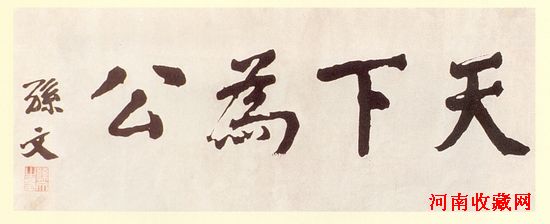 天下為公
孫文
河南收藏网